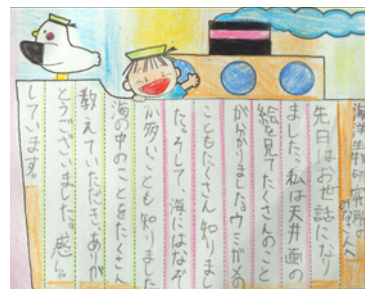 海洋生物研究所の
みなさんへ
先日はお世話になり
ました。私は天井画の
絵を見てたくさんのこと
が分かりました。ウミガメの
こともたくさん知りまし
た。そして、海にはなぞ
が多いことも知りました
海の中のことをたくさん
教えていただき、ありが
とうございました。感しゃ
しています。